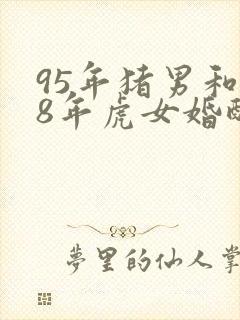 95年猪男和
8年虎女婚配
夢里的仙人掌